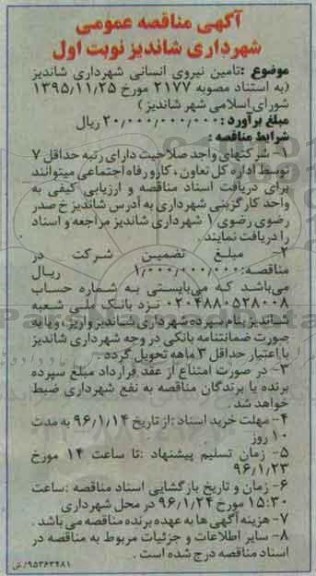 آگهی مناقصه عمومی
شهرداری شاندیز نوبت اول
موضوع :تامین نیروی انسانی شهرداری شاندیز
(به استناد مصوبه ۲۱۷۷ مورخ ۱۳۹۵/۱۱/۲۵
شورای اسلامی شهر شاندیز )
مبلغ برآورد : ۲۰/۰۰۰/۰۰۰/۰۰۰ ریال
شرایط مناقصه :
۱- شرکتهای واجد صلاحیت دارای رتبه حداقل ۷
توسط اداره کل تعاون ، کار و رفاه اجتماعی میتوانند
برای دریافت اسناد مناقصه و ارزیابی کیفی به
واحد کارگزینی شهرداری به آدرس شاندیز خ صدر
رضوی رضوی ۱ شهرداری شاندیز مراجعه و اسناد
را دریافت نمایند .
۲- مبلغ تضمین شرکت در
مناقصه: ۱/۰۰۰/۰۰۰/۰۰۰ ریال
می‌باشد که می‌بایستی به شماره حساب
۰۲۰۴۸۸۰۵۲۸۰۰۸ نزد بانک ملی شعبه
شاندیز بنام سپرده شهرداری شاندیز واریز ، و یا به
صورت ضمانتنامه بانکی در وجه شهرداری شاندیز
با اعتبار حداقل ۳ ماهه تحویل گردد .
۳- در صورت امتناع از عقد قرارداد مبلغ سپرده
برنده یا برندگان مناقصه به نفع شهرداری ضبط
خواهد شد .
۴- مهلت خرید اسناد :از تاریخ ۹۶/۱/۱۴ به مدت
۱۰ روز
۵- زمان تسلیم پیشنهاد :تا ساعت ۱۴ مورخ
۹۶/۱/۲۳
۶- زمان و تاریخ بازگشایی اسناد مناقصه :ساعت
۱۵:۳۰ مورخ ۹۶/۱/۲۴ در محل شهرداری
۷- هزینه آگهی ها به عهده برنده مناقصه می باشد .
۸- سایر اطلاعات و جزئیات مربوط به مناقصه در
اسناد مناقصه درج شده است .
۹۵۳۶۳۴۸۱/ش